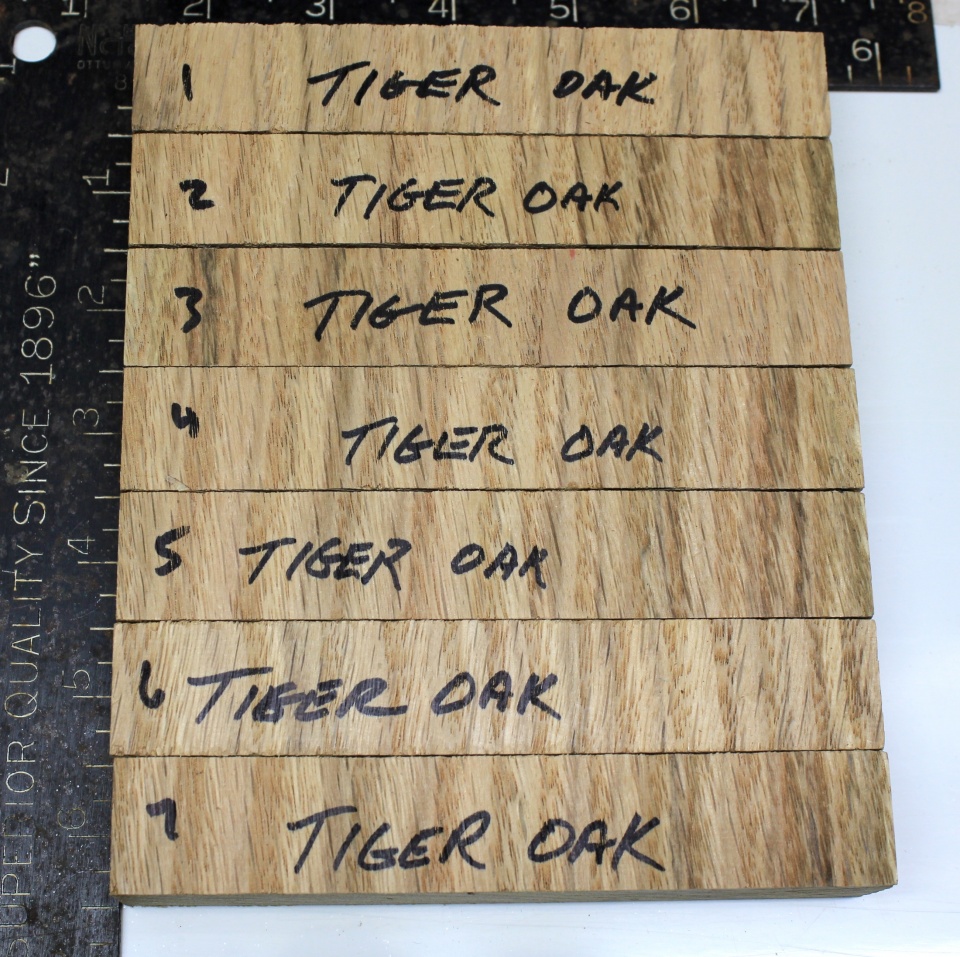 1 2 3 4 5 6 7 8
6
1 TIGER OAK
2 TIGER OAK
3 TIGER OAK
4 TIGER OAK
5 TIGER OAK
6 TIGER OAK
7 TIGER OAK
1
2
3
4
5
6
SUPERIOR QUALITY SINCE 1896"